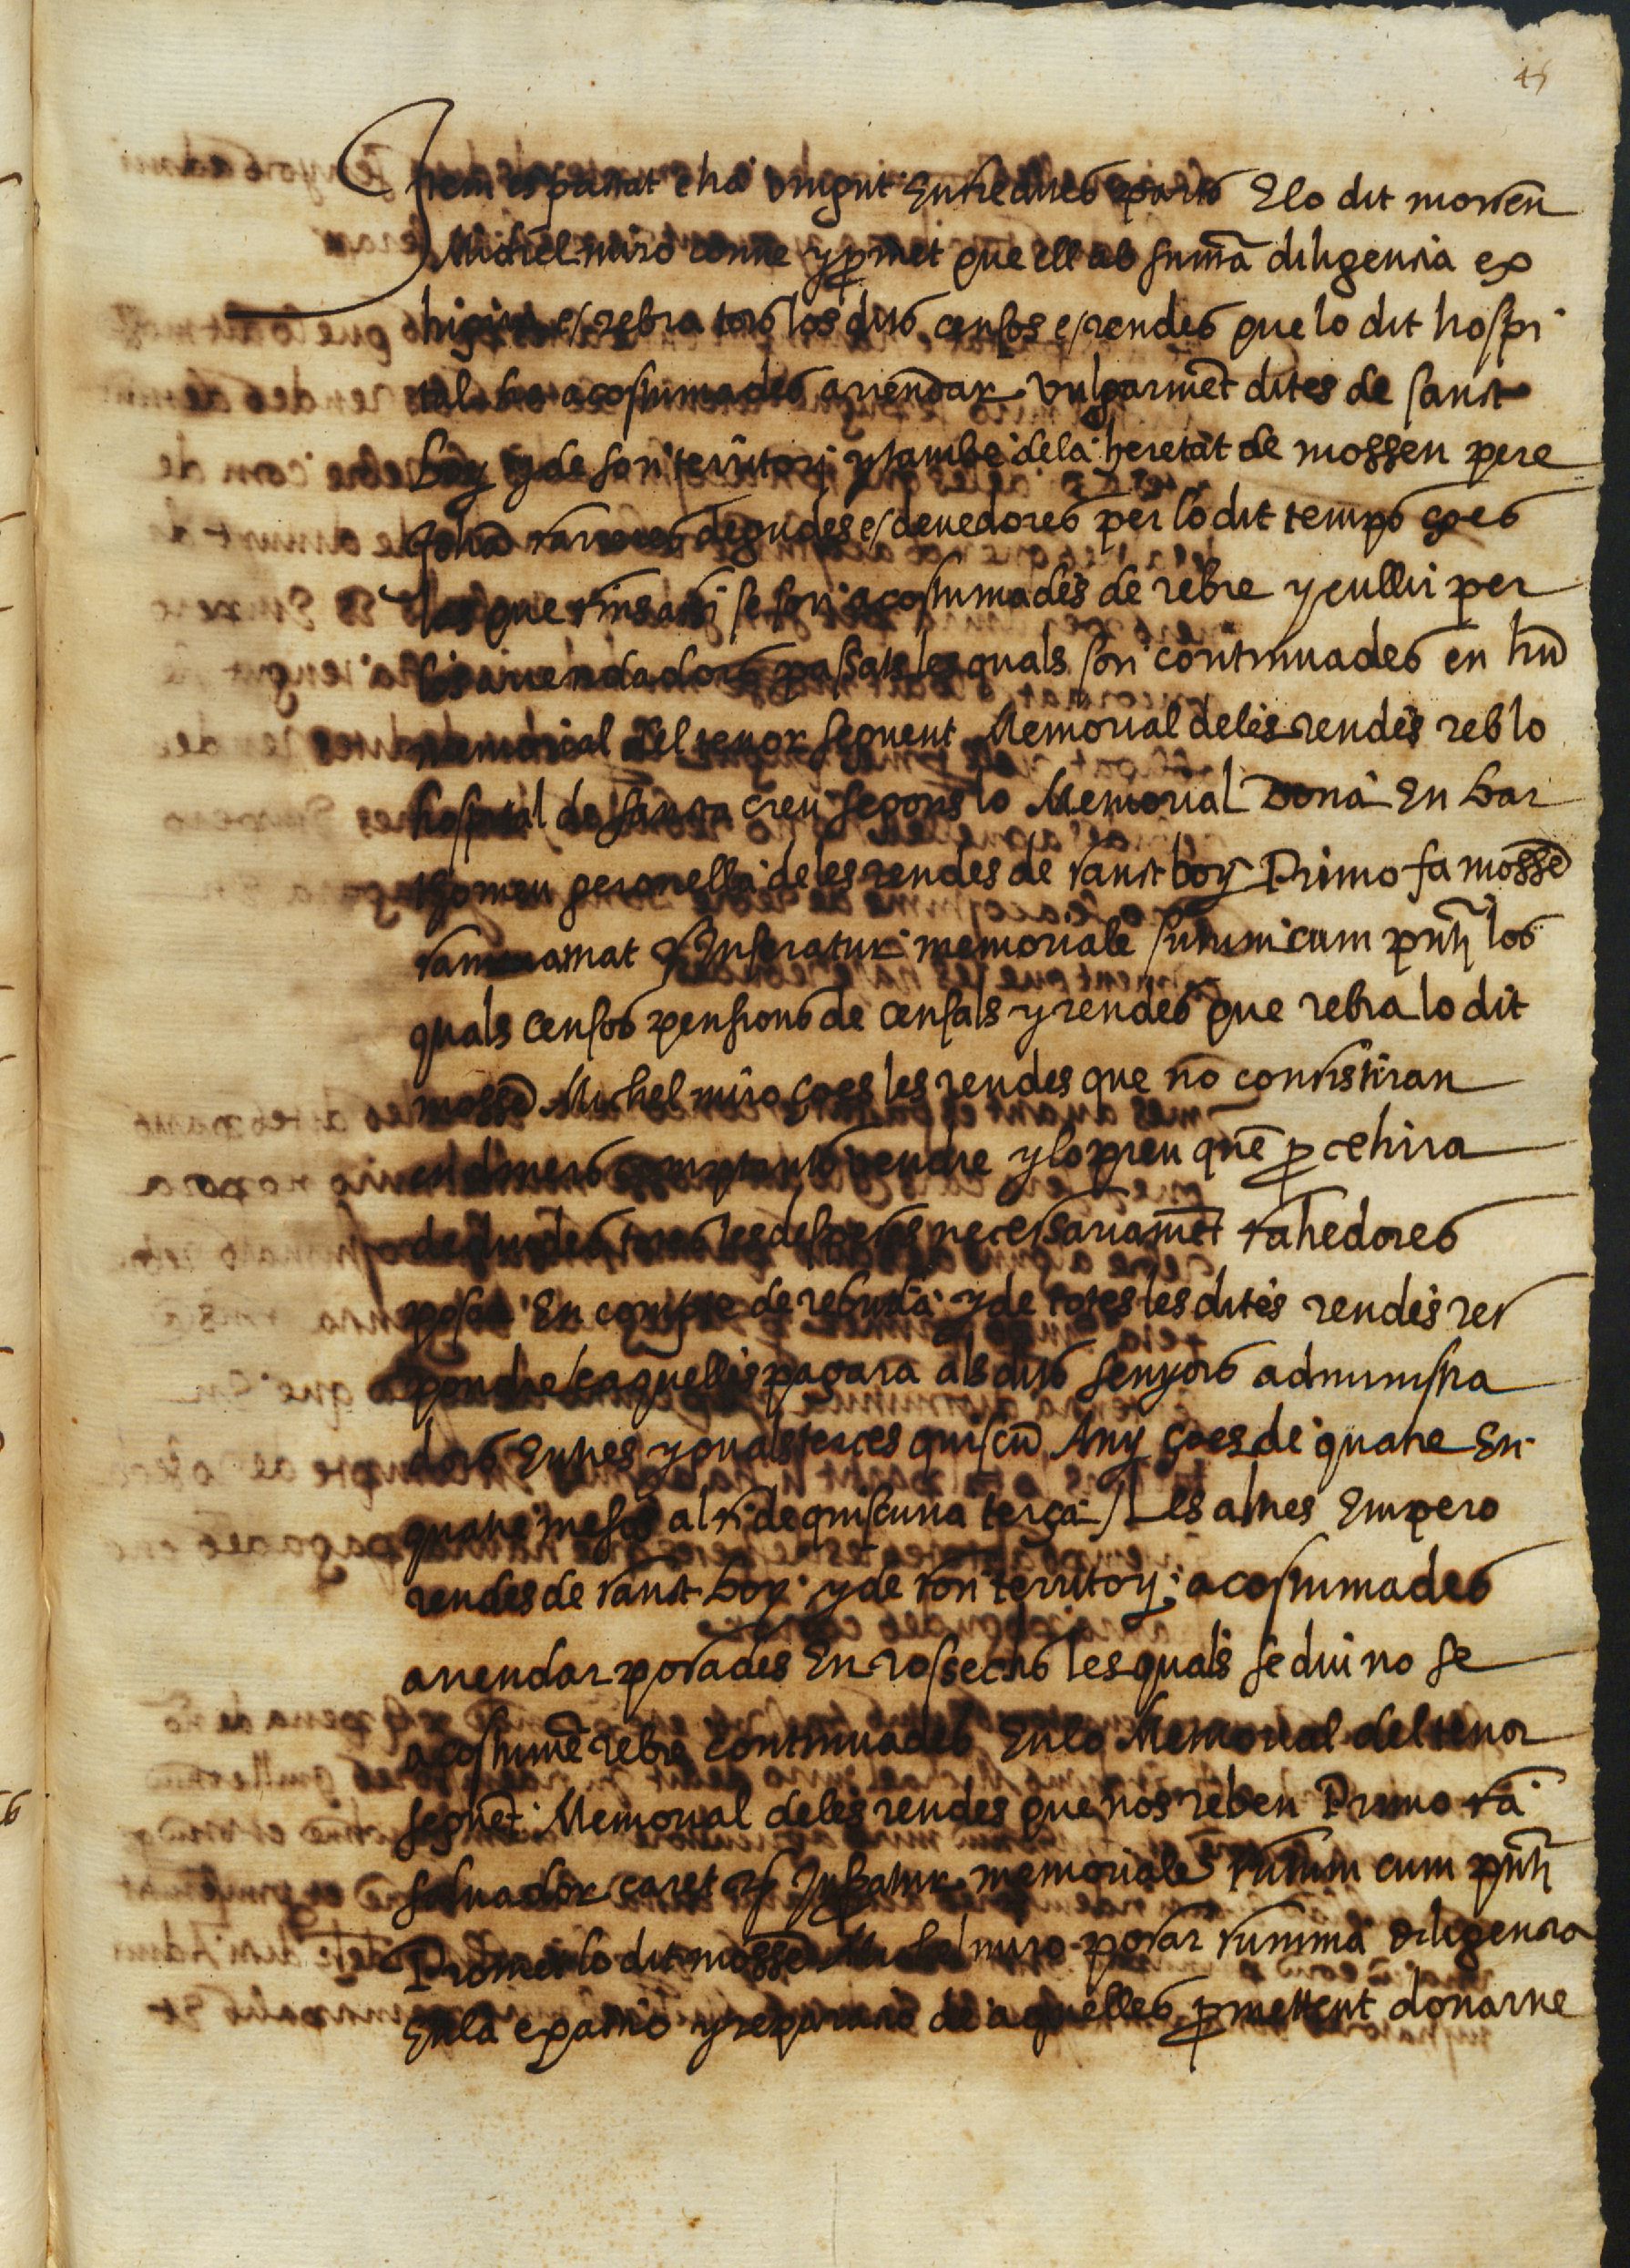 45
Item es pactat e ha vingut entre dites parts E lo dit mossen
Michel miro conve y ꝓmet que ell ab suma diligencia ex
higira e rebra tots los dits censos e rendes que lo dit hospi
tal ha acostumades arrendar vulgarmet dites de sanct
boy y de son territori y tambe dela heretat de mossen pere
Johã degudes e devedores per lo dit temps ço es
les que fins assi se son acostumades de rebre y cullir per
los arrendadors passats les quals son continuades en hũ
memorial del tenor seguent Memorial deles rendes reb lo
hospital de santa creu segons lo Memorial dona En bar
thomeu geronella de les rendes de sanct boy Primo fa mossẽ
amat Inseratur memoriale sutum cum pñti los
quals censos pensions de censals y rendes que rebra lo dit
mossẽ Michel miro ço es les rendes que no consistiran
en diners comptants vendre y lo preu quẽ ꝓcehira
deduides totes les despeses necessariamẽt fahedores
posar En compte de rebuda y de totes les dites rendes res
pondre e aquelles pagara als dits senyors administra
dors En tres yguals terces quiscũ Any ço es de quatre En
quatre mesos al fi de quiscuna terça / Les altres Empero
rendes de sanct boy y de son territory acostumades
arrendar posades En rossechs les quals se diu no se
acostumẽ rebre continuades En lo Memorial del tenor
seguẽt Memorial deles rendes que nos reben Primo fa
salvador caret Inseratur memoriale sutum cum pñti
Promet lo dit mossẽ Michel miro posar summa diligencia
En la exactio y reparatio de aquelles ꝓmettent donarne